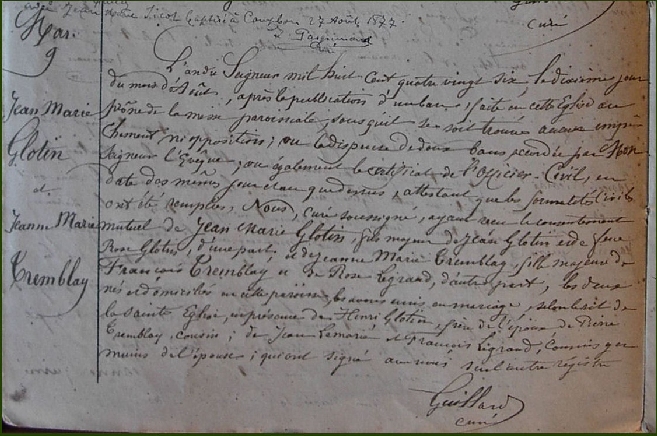 Jean Marie Sicot baptisé à Campbon 27 Août 1877
curé
Mar.
9
Jean Marie
Glotin
et
Jeanne Marie
Tremblay
L'an du Seigneur mil huit-cent quatre vingt six, le dixième jour
du mois d'Août, après la publication d'un ban, faite en cette Eglise au
prône de la messe paroissiale, sans qu'il se soit trouvé aucun empê-
chement ni opposition; vu la dispense de deux bans accordée par Mon
seigneur l'Evêque; vu également le certificat de l'Officier-Civil, en
date des mêmes jour et an que dessus, attestant que les formalités civiles
ont été remplies, Nous, curé soussigné, ayant reçu le consentement
mutuel de Jean Marie Glotin, fils majeur de Jean Glotin et de feue
Rose Glotin, d'une part, et de Jeanne Marie Tremblay, fille majeure de
François Tremblay et de Rose Legrand, d'autre part, les deux
nés et domiciliés en cette paroisse, les avons unis en mariage, selon le rit de
la Sainte Eglise, en présence de Henri Glotin, frère de l'époux, de René
Tremblay, cousin; de Jean Lamarié et François Legrand, cousins ger-
mains de l'épouse; qui ont signé avec nous sur l'autre registre
Guillard
curé